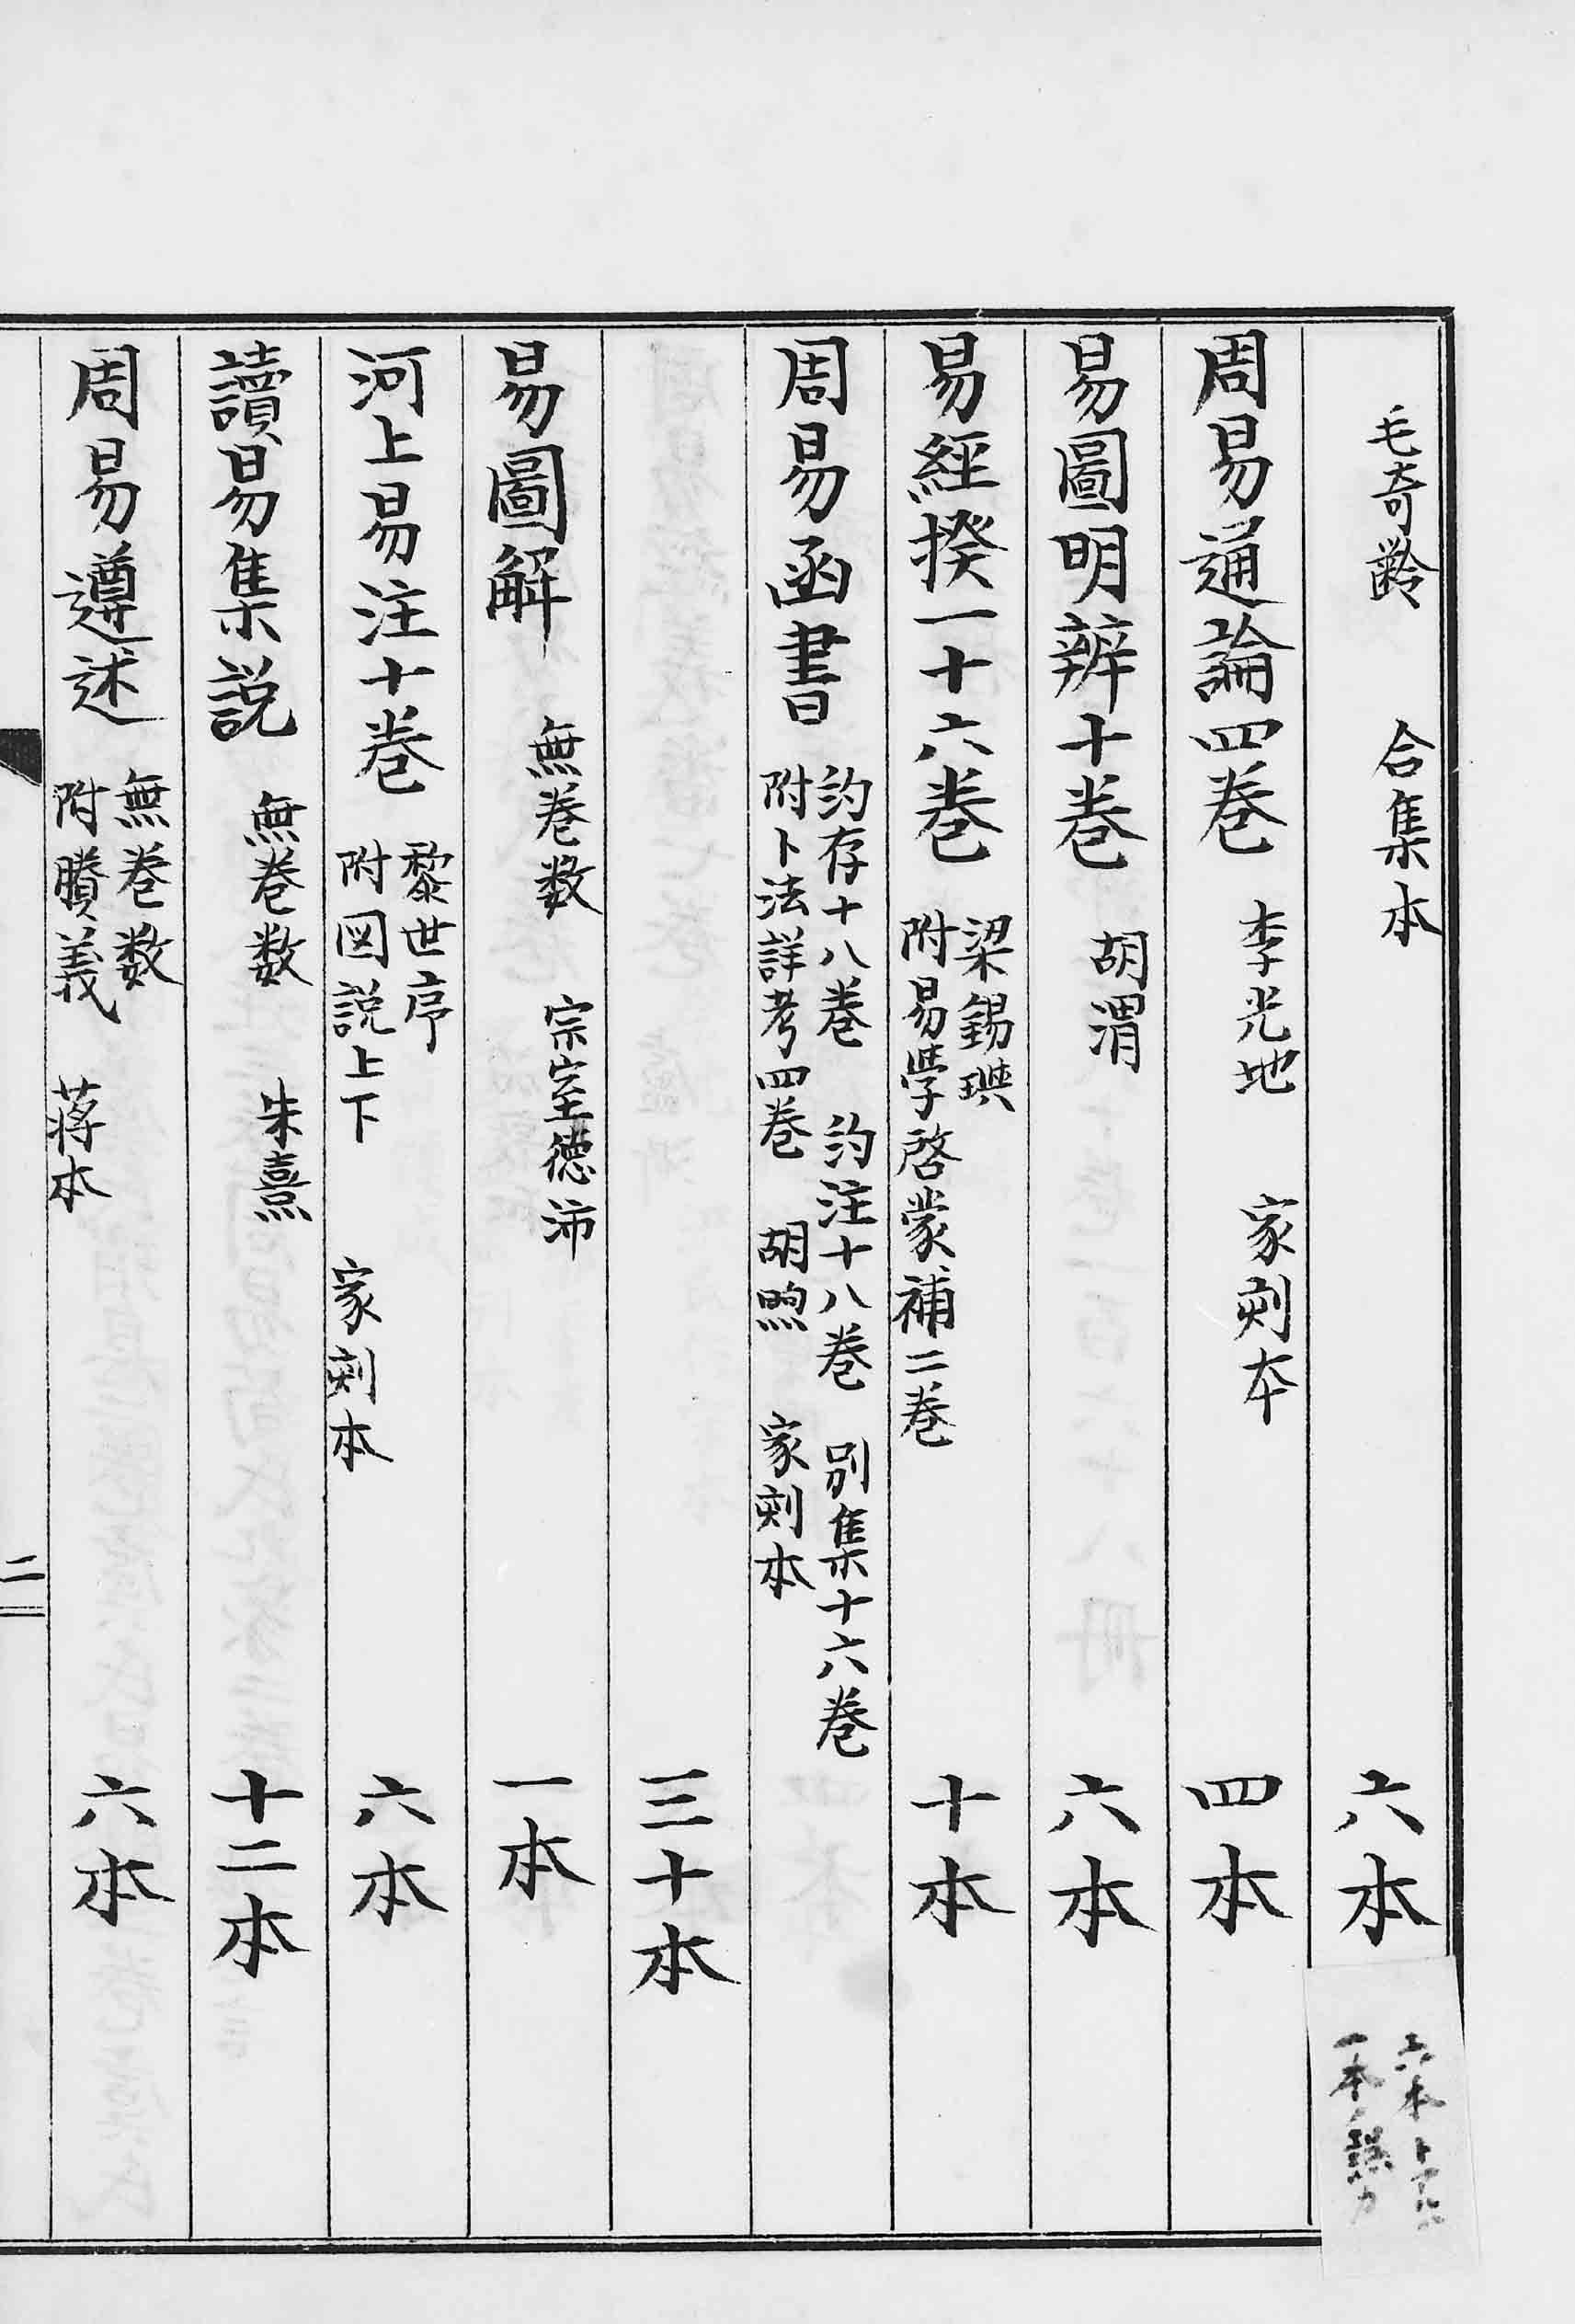 毛奇齡 合集本 六本
六本トアルハ
一本ノ誤カ
周易通論四巻 李光地 家刻本 四本
易圖明辨十巻 胡渭 六本
易經揆一十六巻 梁錫璵 十本
附易學啓蒙補二巻
周易函書 約存十八巻 約注十八巻 別集十六巻
附卜法詳考四巻 胡煦 家刻本
三十本
易圖解 無巻数 宗室德沛 一本
河上易注十巻 黎世序 六本
附図説上下 家刻本
讀易集説 無巻数 朱熹 十二本
周易遵述 無巻数 六本
附賸義 蒋本
二